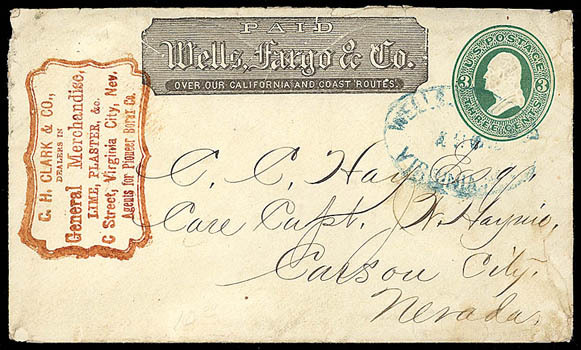 PAID
Wells, Fargo & Co.
OVER OUR CALIFORNIA AND COAST ROUTES.
U.S. POSTAGE
3 3
THREE CENTS
C. H. CLARK & CO.,
DEALERS IN
General Merchandise,
LIME, PLASTER, &c.
C Street, Virginia City, Nev.
Agents for Pioneer Borax Co.
WELLS
VIRGINIA
C. C. Hay Esq.
Care Capt. J. W. Haynie,
Carson City.
Nevada.